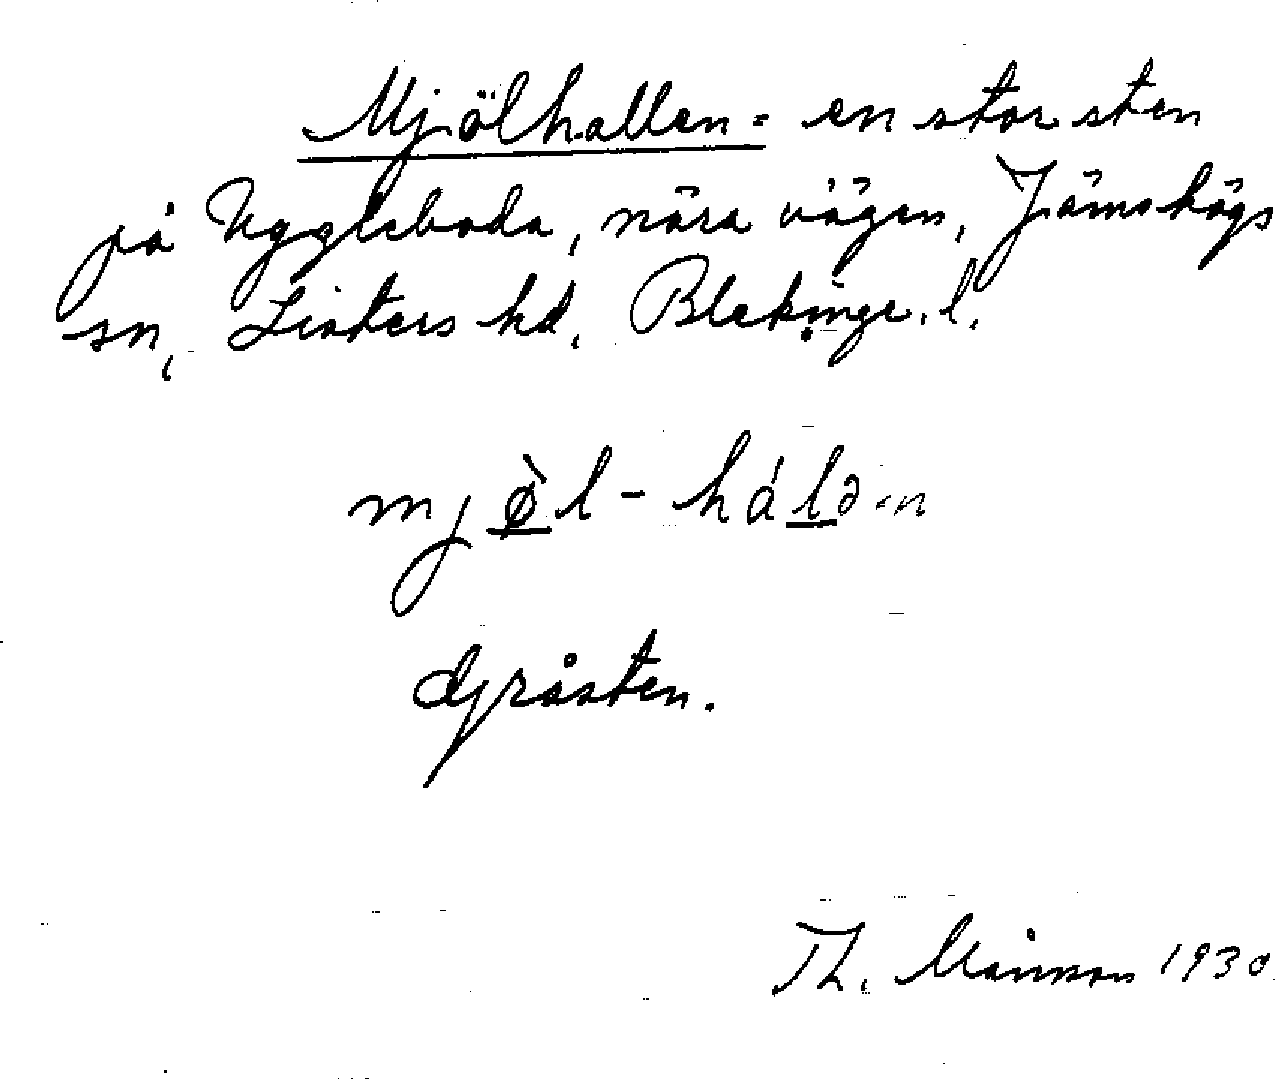 Mjölhallen = en stor sten
på Uggleboda, nära vägen, Jämshögs
sn, Listers hd, Blekinge.l.
mjø̀l-hálə-n
Gråsten.
Th. Månsson 1930